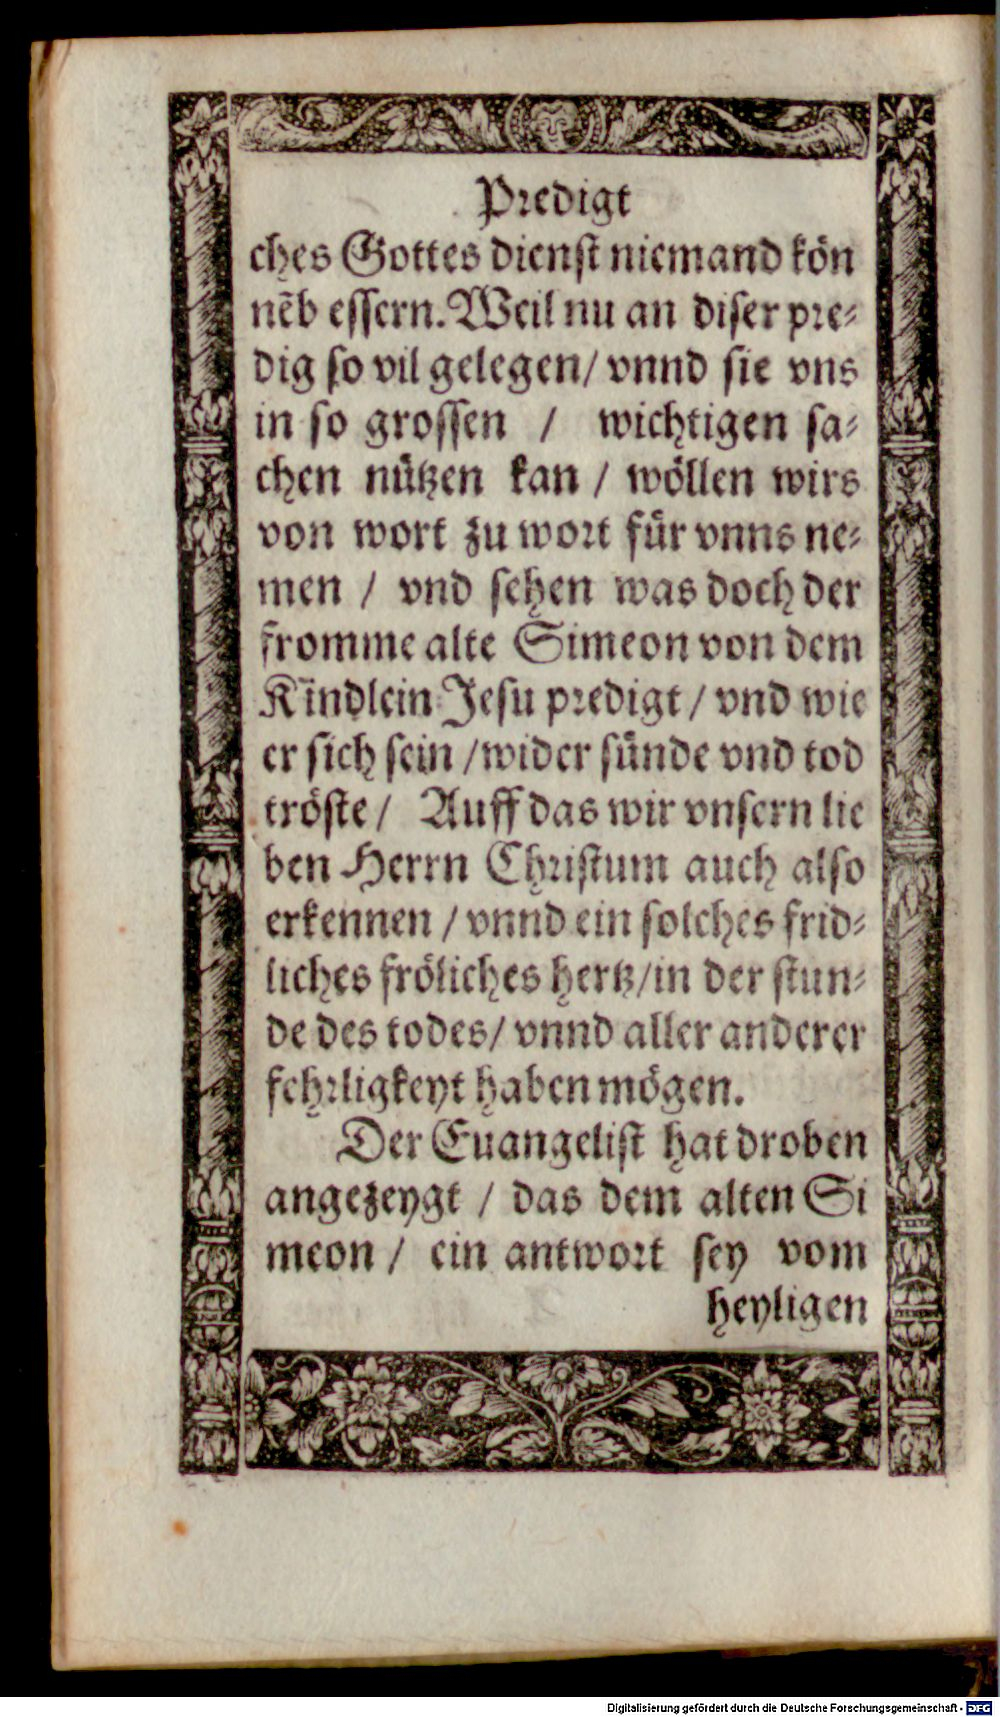 Predigt
ches Gottes dienſt niemand kön
nẽb eſſern. Weil nu an diſer pre⸗
dig ſo vil gelegen/ vnnd ſie vns
in ſo groſſen / wichtigen ſa⸗
chen nützen kan / wöllen wirs
von wort zu wort für vnns ne⸗
men / vnd ſehen was doch der
fromme alte Simeon von dem
Kindlein Jeſu predigt / vnd wie
er ſich ſein /wider ſünde vnd tod
tröſte / Auff das wir vnſern lie
ben Herrn Chriſtum auch alſo
erkennen / vnnd ein ſolches frid⸗
liches fröliches hertz/in der ſtun⸗
de des todes/ vnnd aller anderer
fehrligkeyt haben mögen.
Der Euangeliſt hat droben
angezeygt / das dem alten Si
meon / ein antwort ſey vom
heyligen
Digitalisierung gefördert durch die Deutsche Forschungsgemeinschaft - DFG